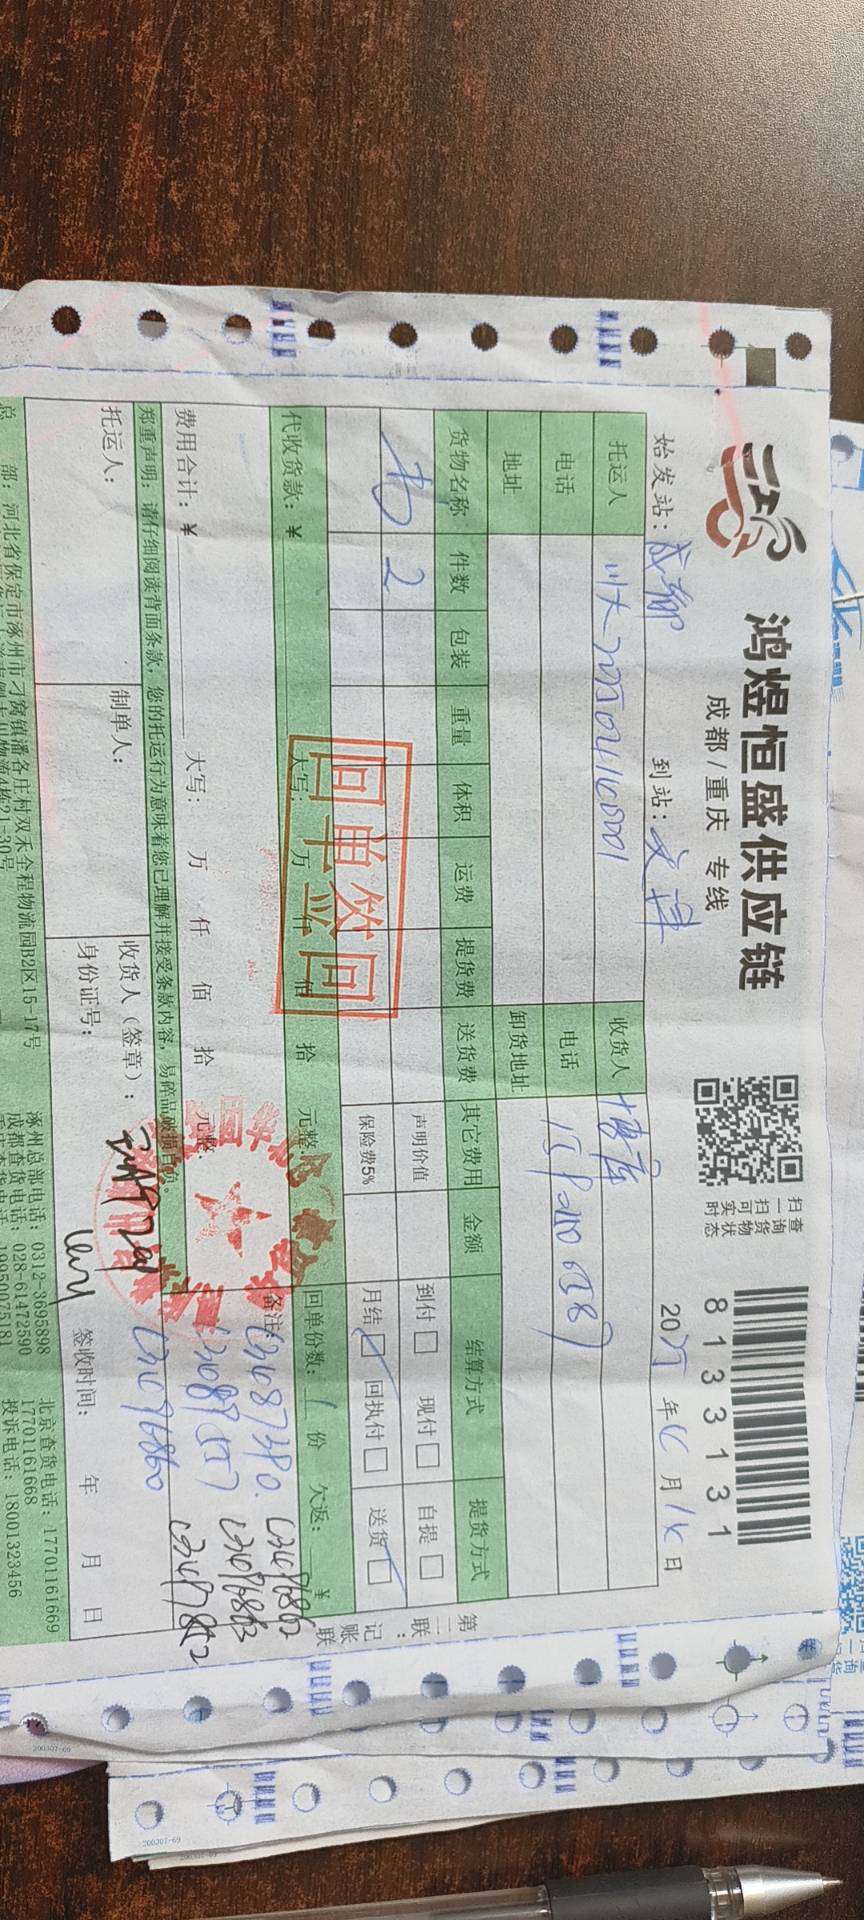 鸿煜恒盛供应链
成都/重庆 专线
扫一扫可实时
查询货物状态
8133131
始发站：成都
到站：文泽
年 月 日
托运人
川大202504160001
收货人
博库
电话
电话
地址
卸货地址
货物名称 件数 包装 重量 体积 运费 提货费 送货费 其它费用 金额 结算方式 提货方式
书 2
声明价值
到付□ 现付□ 自提□
保险费5%
月结□ 回执付□ 送货□
回单签回
代收货款：¥ 大写： 万 仟 佰 拾 元整
回单份数：1份 欠返： ¥
费用合计：¥ 大写： 万 仟 佰 拾 元整
备注：
C31087380
C31096862
C31096863
C31096860
郑重声明：请仔细阅读背面条款，您的托运行为意味着您已理解并接受条款内容，易碎品破损自负。
托运人：
制单人：
收货人（签章）：
身份证号：
签收时间： 年 月 日
第二联：记账联
总 部：河北省保定市涿州市刁窝镇潘各庄村双禾全程物流园B2区15-17号
涿州总部电话：0312-3695898
北京查货电话：17701161669
成都查货电话：028-61472590
17701161668
19950075181
投诉电话：18001323456